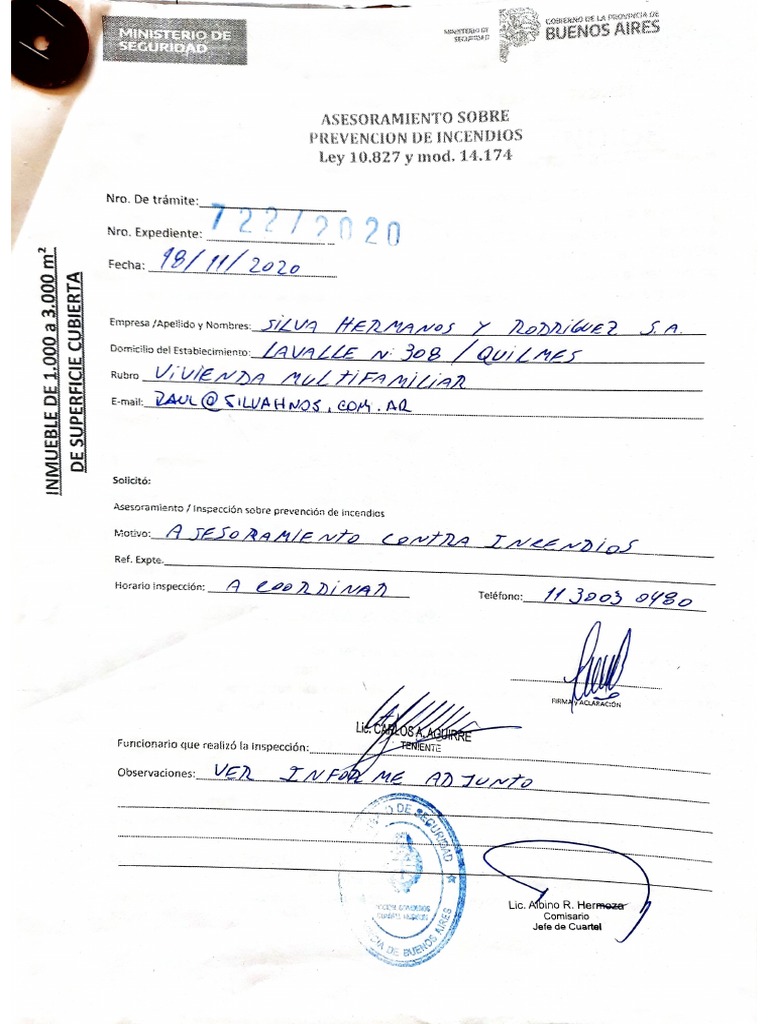 MINISTERIO DE
SEGURIDAD
MINISTERIO DE
SEGURIDAD
GOBIERNO DE LA PROVINCIA DE
BUENOS AIRES
ASESORAMIENTO SOBRE
PREVENCION DE INCENDIOS
Ley 10.827 y mod. 14.174
INMUEBLE DE 1.000 a 3.000 m²
DE SUPERFICIE CUBIERTA
Nro. De trámite:
Nro. Expediente: 722/2020
Fecha: 18/11/2020
Empresa /Apellido y Nombres: SILVA HERMANOS Y RODRIGUEZ S.A.
Domicilio del Establecimiento: LAVALLE N. 308 / QUILMES
Rubro VIVIENDA MULTIFAMILIAR
E-mail: RAUL@SILVAHNOS.COM.AR
Solicitó:
Asesoramiento / Inspección sobre prevención de incendios
Motivo: ASESORAMIENTO CONTRA INCENDIOS
Ref. Expte.
Horario Inspección: A COORDINAR Teléfono: 11 3003 0480
FIRMA Y ACLARACIÓN
Lic. CARLOS A. AGUIRRE
TENIENTE
Funcionario que realizó la Inspección:
Observaciones: VER INFORME ADJUNTO
DE SEGURIDAD
DE BUENOS AIRES
Lic. Albino R. Hermoza
Comisario
Jefe de Cuartel